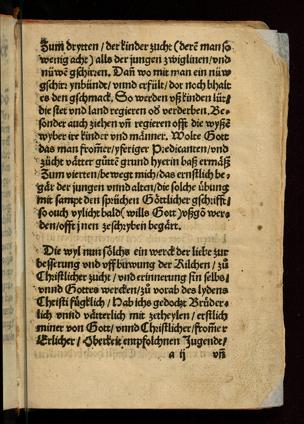 Zum drytten / der kinder zucht (derē man so
wenig acht) alls der jungen zwiglinen / vnd
nüwē gschirren. Dañ wo mit man ein nüw
gschirr ynbründt / vnnd erfült / dor noch bhalt
es den gschmack. So werden vß kinden lüt /
die stet vnd land regieren od̕ verderben. Be⸗
sonder auch ziehen vñ regieren offt die wyßē
wyber ire kinder vnd männer. Wolte Gott
das man from̄er / yferiger Predicanten / vnd
zücht vätter gůtē grund hyerin baß ermäß
Zum vierten / bewegt mich / das ernstlich be⸗
gär der jungen vnnd alten / die solche übung
mit sampt den sprüchen Göttlicher gschrifft /
so ouch vylicht bald (wills Gott) vßgō wer⸗
den / offt jnen zeschryben begärt.
Die wyl nun sölchs ein werck der liebe zur
besserung vnd vffbüwung der Kilchen / zů
Christlicher zucht / vnd erinnerung sin selbs /
vnnd Gottes wercken / zů vorab des lydens
Christi füglich / Hab ichs gedocht Brüder⸗
lich vnnd vätterlich mit zetheylen / erstlich
miner von Gott / vnnd Christlicher / from̄er
Erlicher / Oberkeit empfolchnen Jugende /
a ij vñ